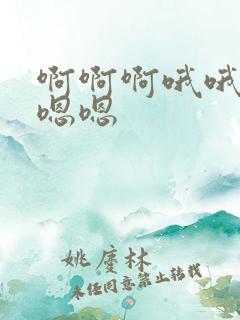 啊啊啊哦哦
嗯嗯
姚庆林
未经同意禁止转载